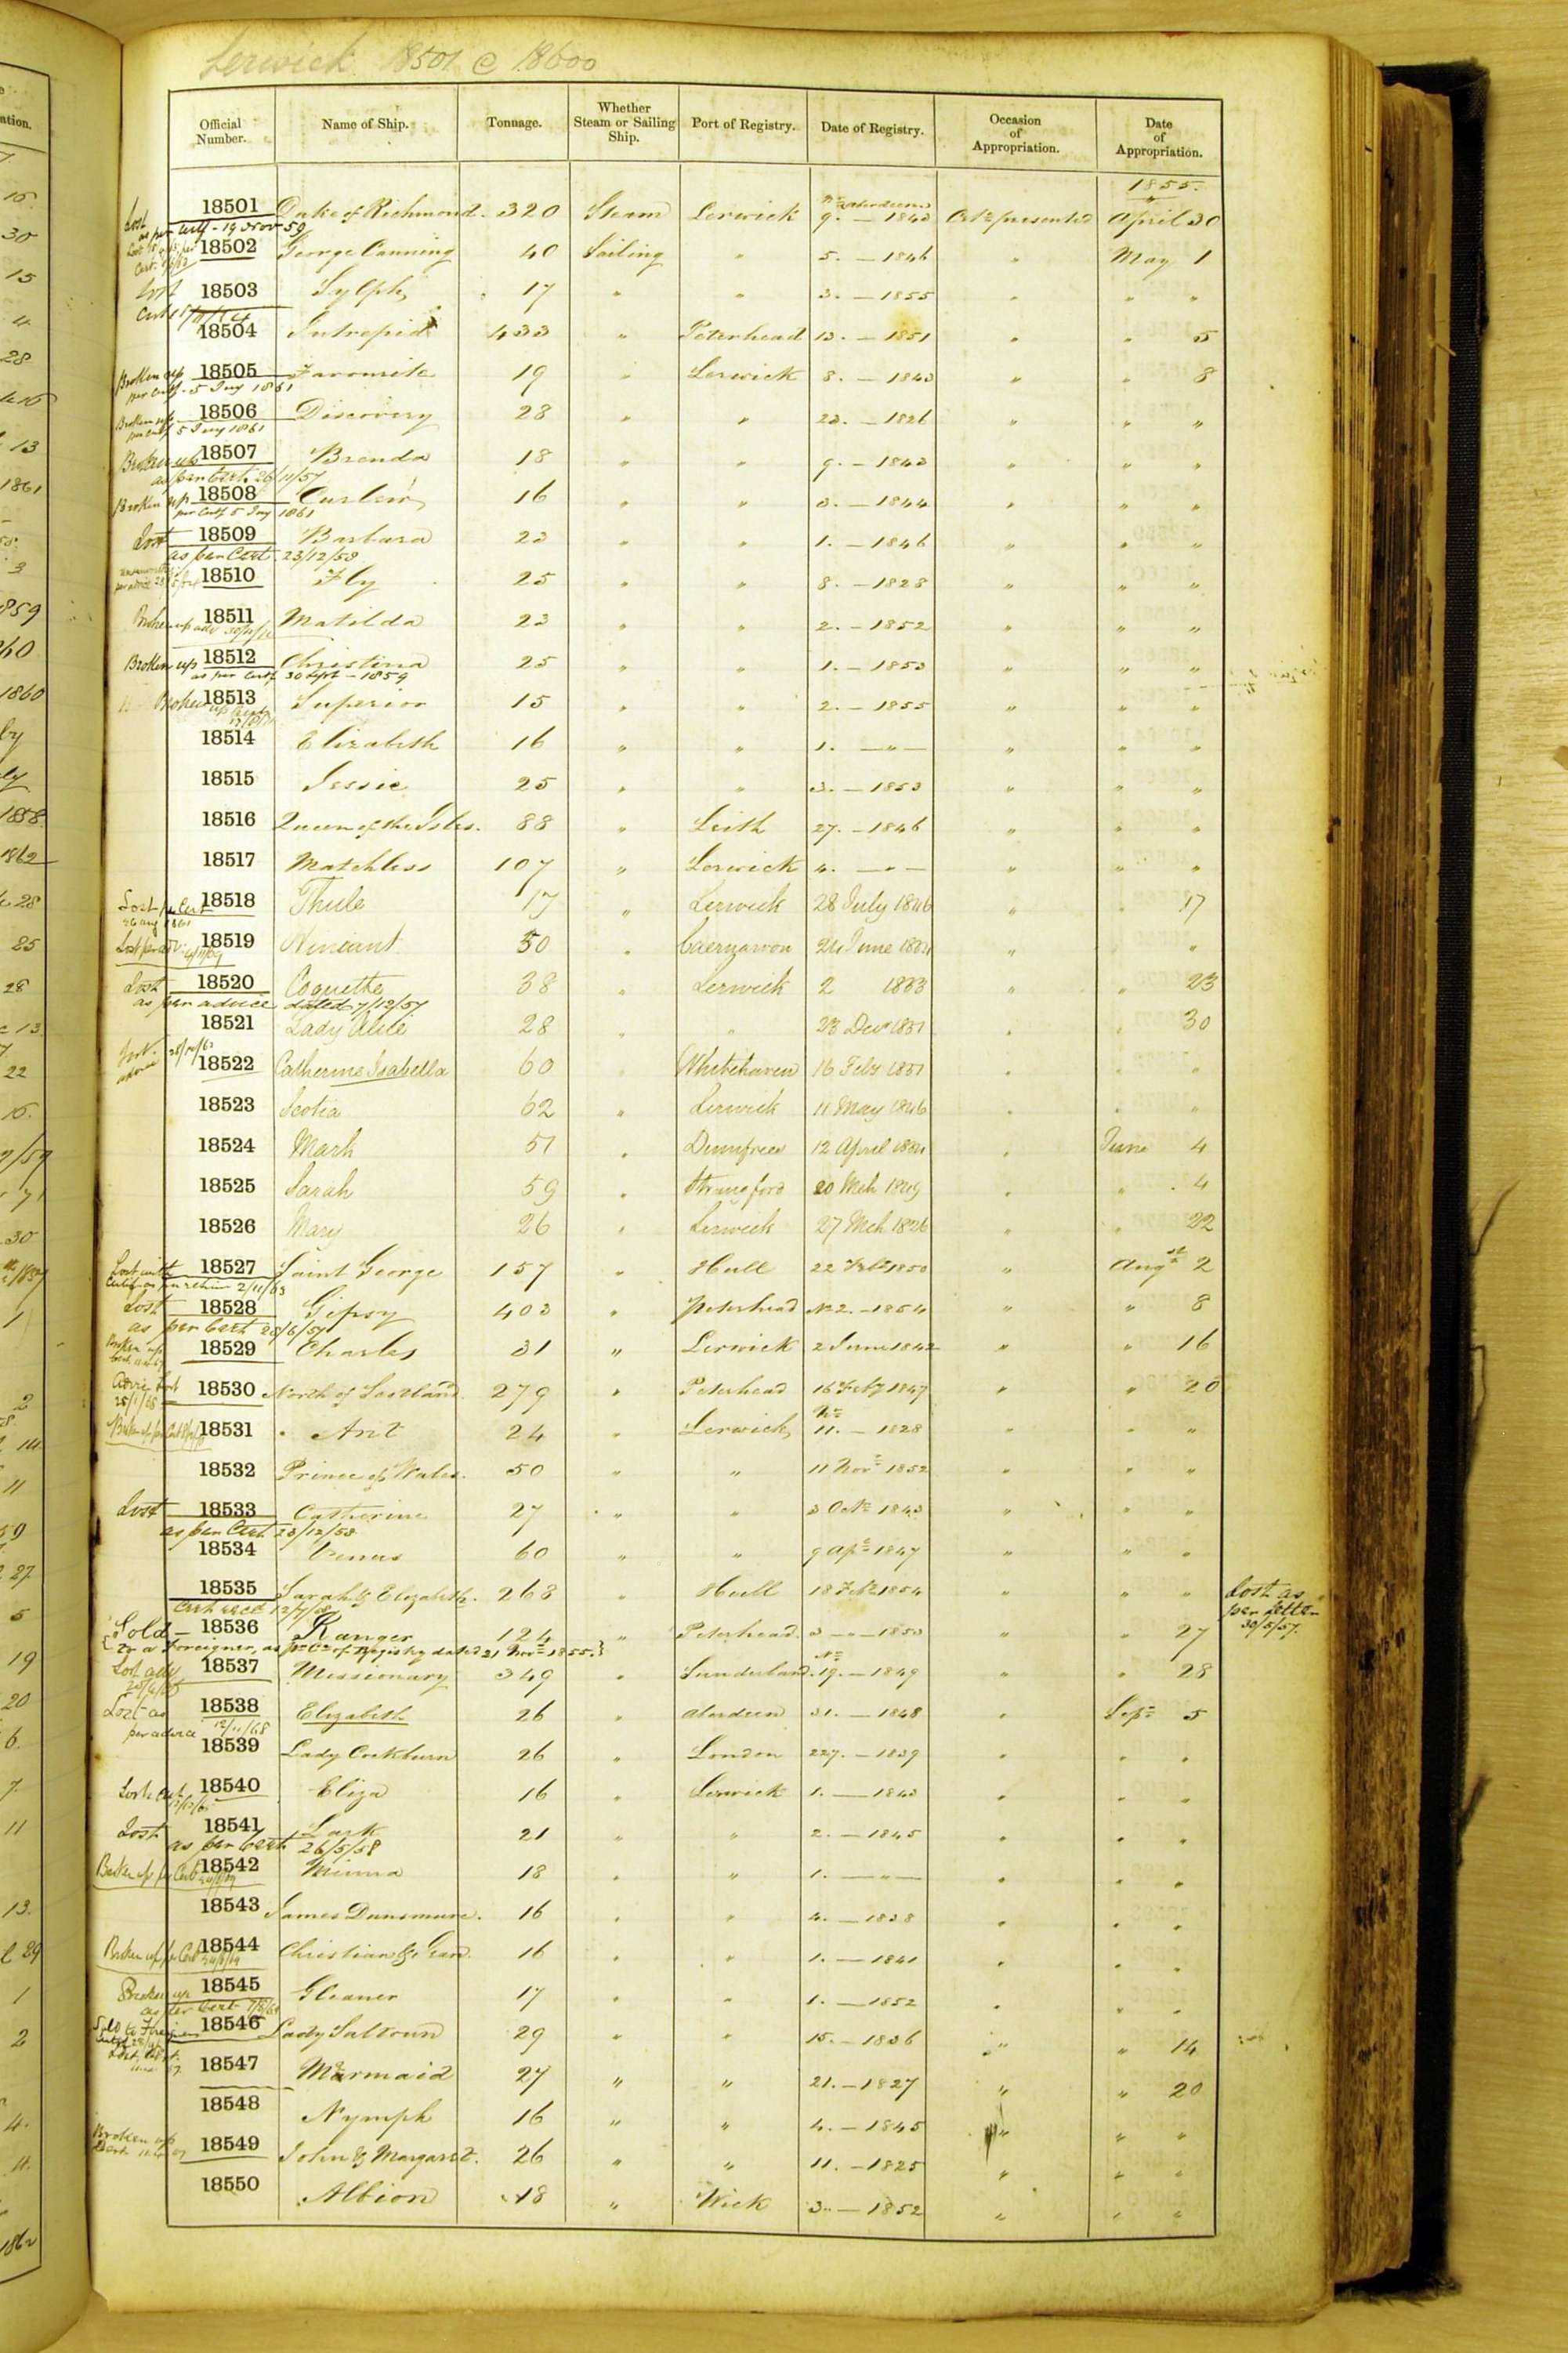 Lerwick 18501 @ 18600
Official Number. Name of Ship. Tonnage. Whether Steam or Sailing Ship. Port of Registry. Date of Registry. Occasion of Appropriation. Date of Appropriation.
1855.
Lost 18501 Duke of Richmond. 320 Steam Lerwick 9. — 1843 presented April 30
as per Certf - 19 Nov 59
18502 George Canning 40 Sailing " 5. — 1846 " May 1
Lost 18503 Sylph 17 " " 3. — 1855 " " "
18504 Intrepid 433 " Peterhead 13. — 1851 " " 5
Broken up 18505 Favourite 19 " Lerwick 8. — 1843 " " 8
per Certf - 5 Jny 1861
Broken up 18506 Discovery 28 " " 23. — 1826 " " "
per Certf 5 Jny 1861
Broken up 18507 Brenda 18 " " 9. — 1843 " " "
as per Cert. 26/11/57
Broken up 18508 Curlew 16 " " 3. — 1844 " " "
per Certf 5 Jny 1861
Lost 18509 Barbara 23 " " 1. — 1846 " " "
as per Cert. 23/12/58
18510 Fly 25 " " 8. — 1828 " " "
Broken up 18511 Matilda 23 " " 2. — 1852 " " "
Broken up 18512 Christina 25 " " 1. — 1853 " " "
as per Certf 30 Sept - 1859
Broken up 18513 Superior 15 " " 2. — 1855 " " "
18514 Elizabeth 16 " " 1. — " — " " "
18515 Jessie 25 " " 3. — 1853 " " "
18516 Queen of the Isles. 88 " Leith 27. — 1846 " " "
18517 Matchless 107 " Lerwick 4. — " — " " "
Lost p Cert 18518 Thule 17 " Lerwick 28 July 1846 " " 17
26 Aug 1861
Lost per adv. 18519 50 " Caernarvon 24 June 1834 " " "
Lost 18520 Coquette 38 " Lerwick 2 1833 " " 23
as per advice dated 7/12/57
18521 Lady Alice 28 " " 23 Decr 1831 " " 30
18522 Catherine Isabella 60 " Whitehaven 16 Feby 1851 " " "
18523 Scotia 62 " Lerwick 11 May 1846 " " "
18524 Mark 51 " Dumfries 12 April 1834 " June 4
18525 Sarah 59 " Strangford 20 Mch 1849 " " 4
18526 Mary 26 " Lerwick 27 Mch 1826 " " 22
18527 Saint George 157 " Hull 22 Feb 1850 " Augst 2
2/11/63
Lost 18528 Gipsy 403 " Peterhead No 2. — 1854 " " 8
as per Cert 25/6/57
Broken up 18529 Charles 31 " Lerwick 2 June 1842 " " 16
Advice Lost 18530 North of Scotland 279 " Peterhead 16 Feby 1847 " " 20
Broken up per Cert 18531 Ant 24 " Lerwick No 11. — 1828 " " "
18532 Prince of Wales. 50 " " 11 Novr 1852 " " "
Lost 18533 Catherine 27 " " 3 Octr 1843 " " "
as per Cert 23/12/58
18534 Venus 60 " " 9 Apl 1847 " " "
18535 Sarah & Elizabeth. 268 " Hull 18 Feb 1854 " " " Lost as per letter 30/5/57.
Cert recd
Sold — 18536 Ranger 124 " Peterhead. 3 — 1853 " " 27
to a Foreigner, as pr Ce of Registry dated 21 Novr 1855.
Lost adv 18537 Missionary 349 " Sunderland. No 19. — 1849 " " 28
Lost as 18538 Elizabeth 26 " Aberdeen 31. — 1848 " Sepr 5
per advice 12/11/68
18539 Lady Cockburn 26 " London 227. — 1839 " " "
Lost Cert 18540 Eliza 16 " Lerwick 1. — 1843 " " "
Lost 18541 Lark 21 " " 2. — 1845 " " "
as per Cert 26/5/58
Broken up per Cert 18542 Minna 18 " " 1. — " — " " "
18543 James Dunsmure. 16 " " 4. — 1838 " " "
Broken up per Cert 18544 Christian & Jean 16 " " 1. — 1841 " " "
Broken up 18545 Gleaner 17 " " 1. — 1852 " " "
as per Cert
Sold to Foreigners 18546 Lady Saltoun 29 " " 15. — 1836 " " 14
18547 Mermaid 27 " " 21. — 1827 " " 20
18548 Nymph 16 " " 4. — 1845 " " "
Broken up 18549 John & Margaret. 26 " " 11. — 1825 " " "
18550 Albion 18 " Wick 3. — 1852 " " "